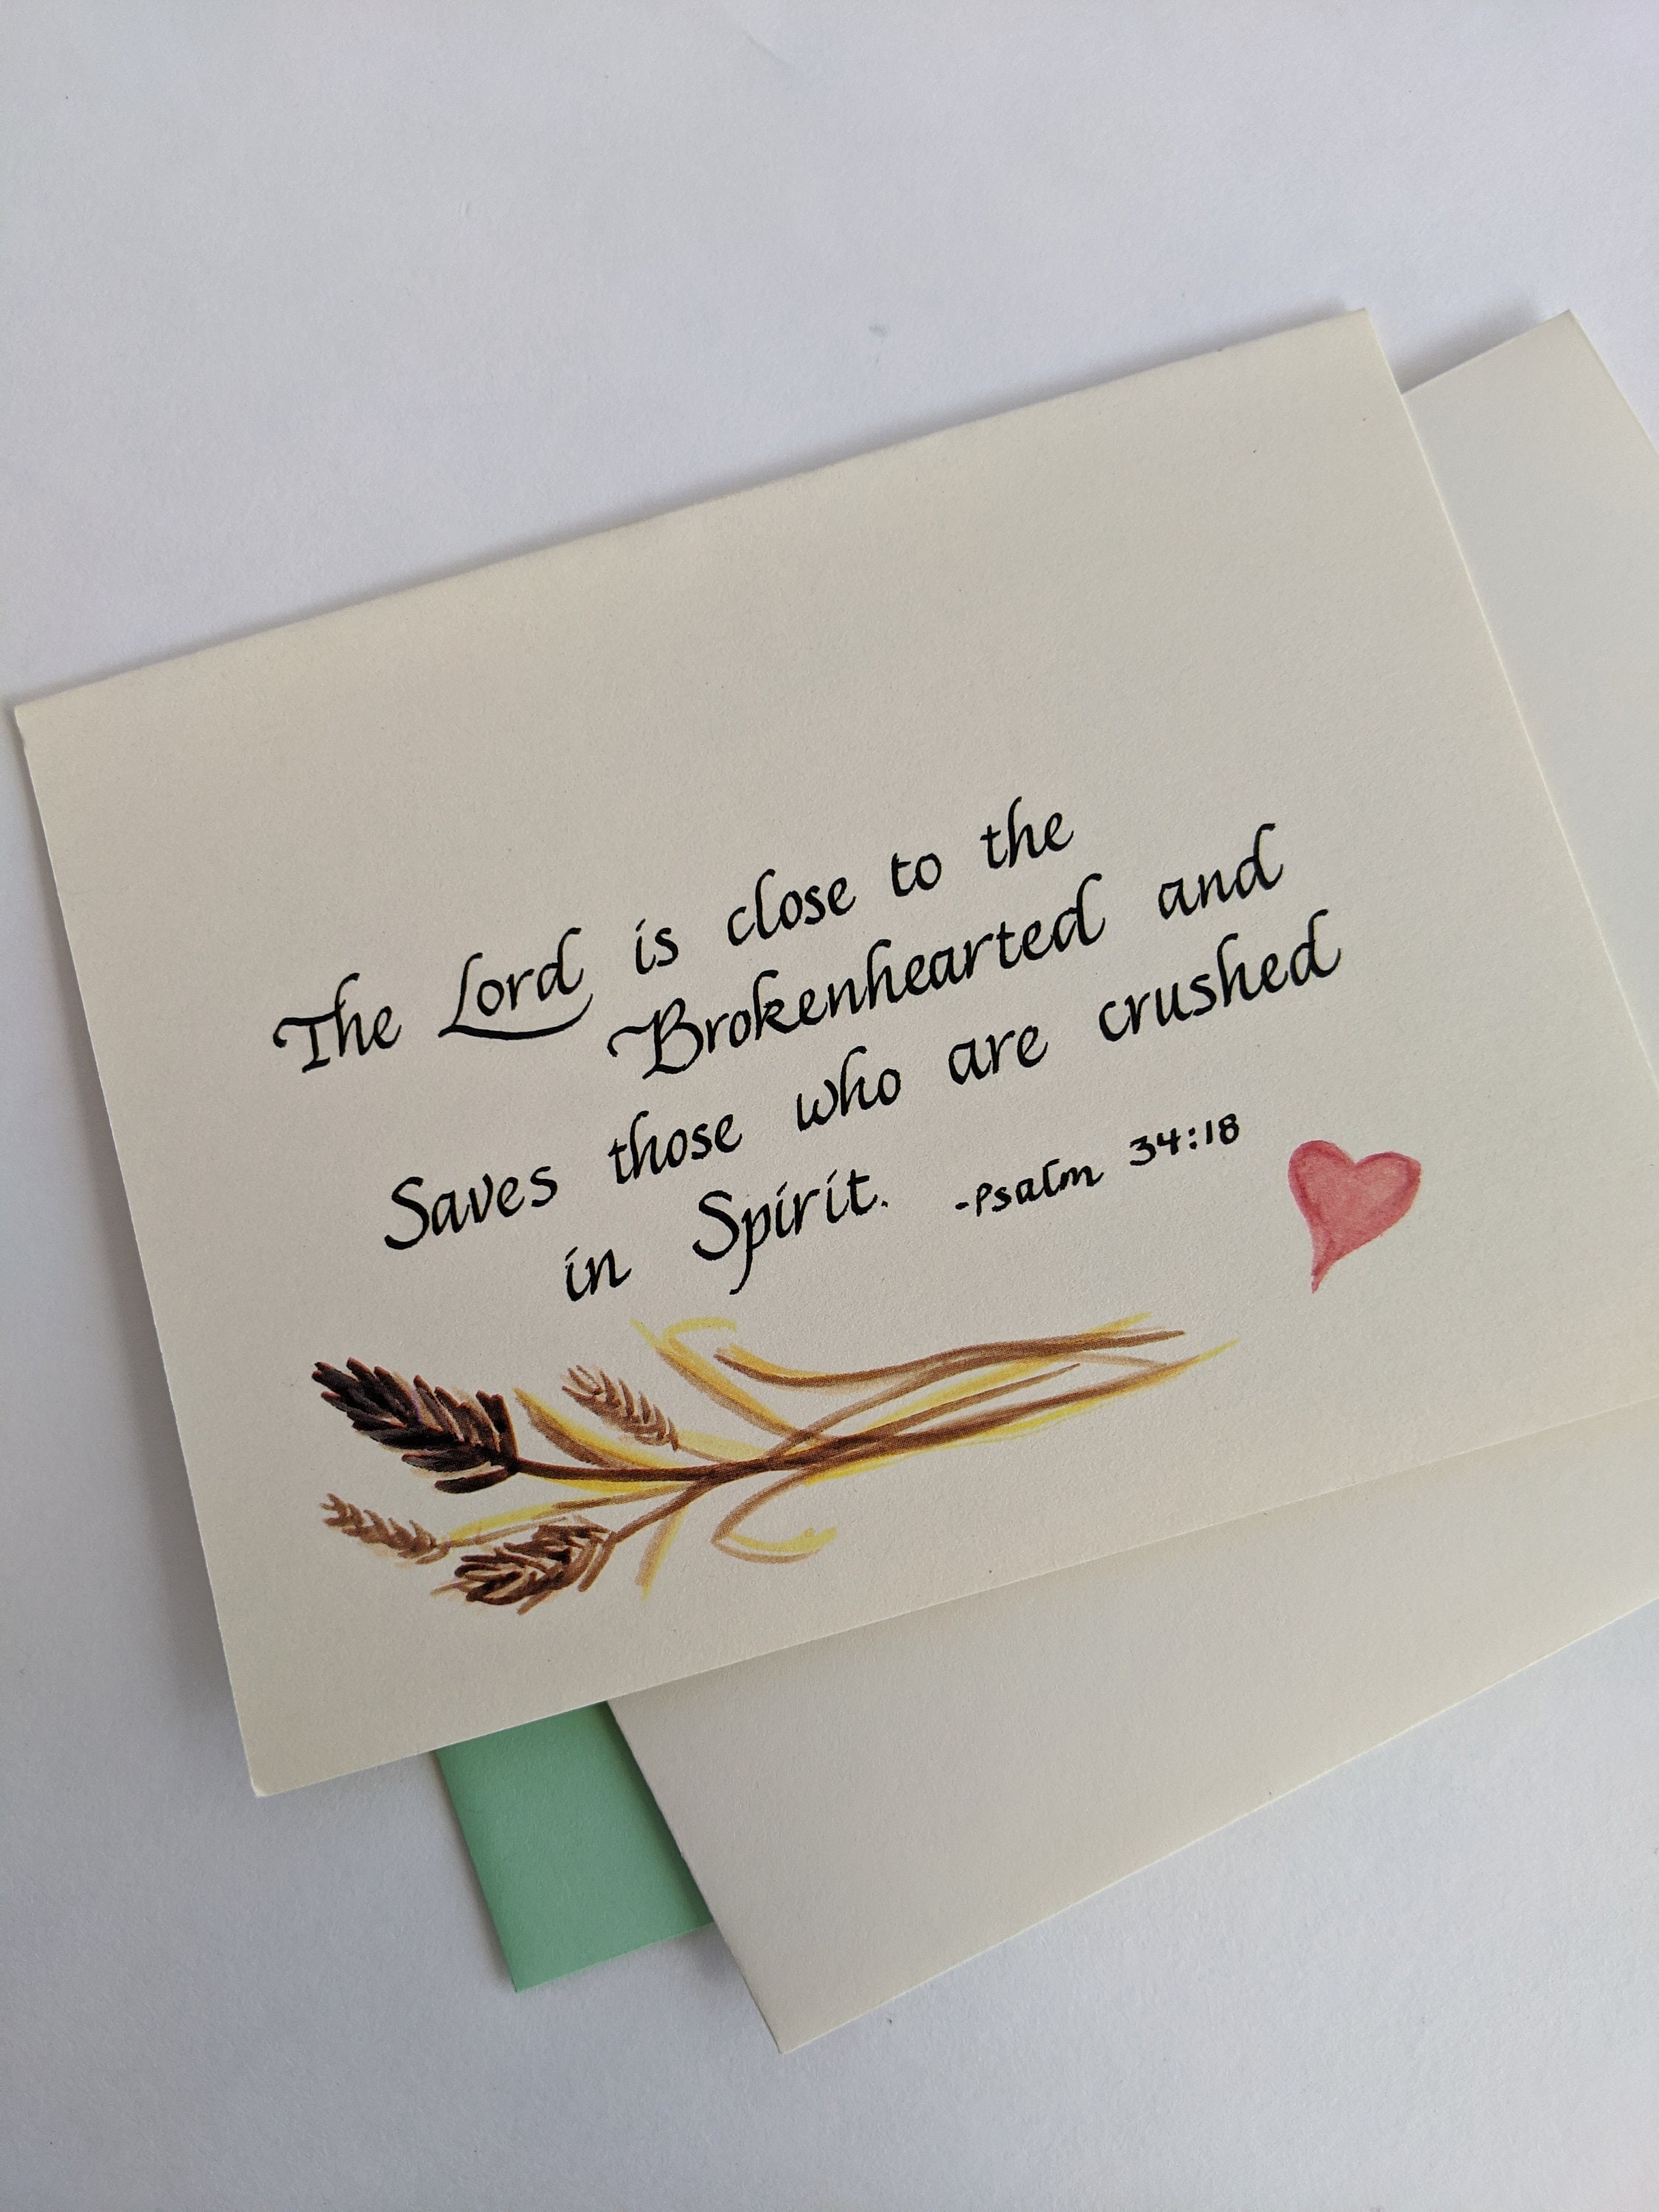 The Lord is close to the
Brokenhearted and
Saves those who are crushed
in Spirit. -Psalm 34:18